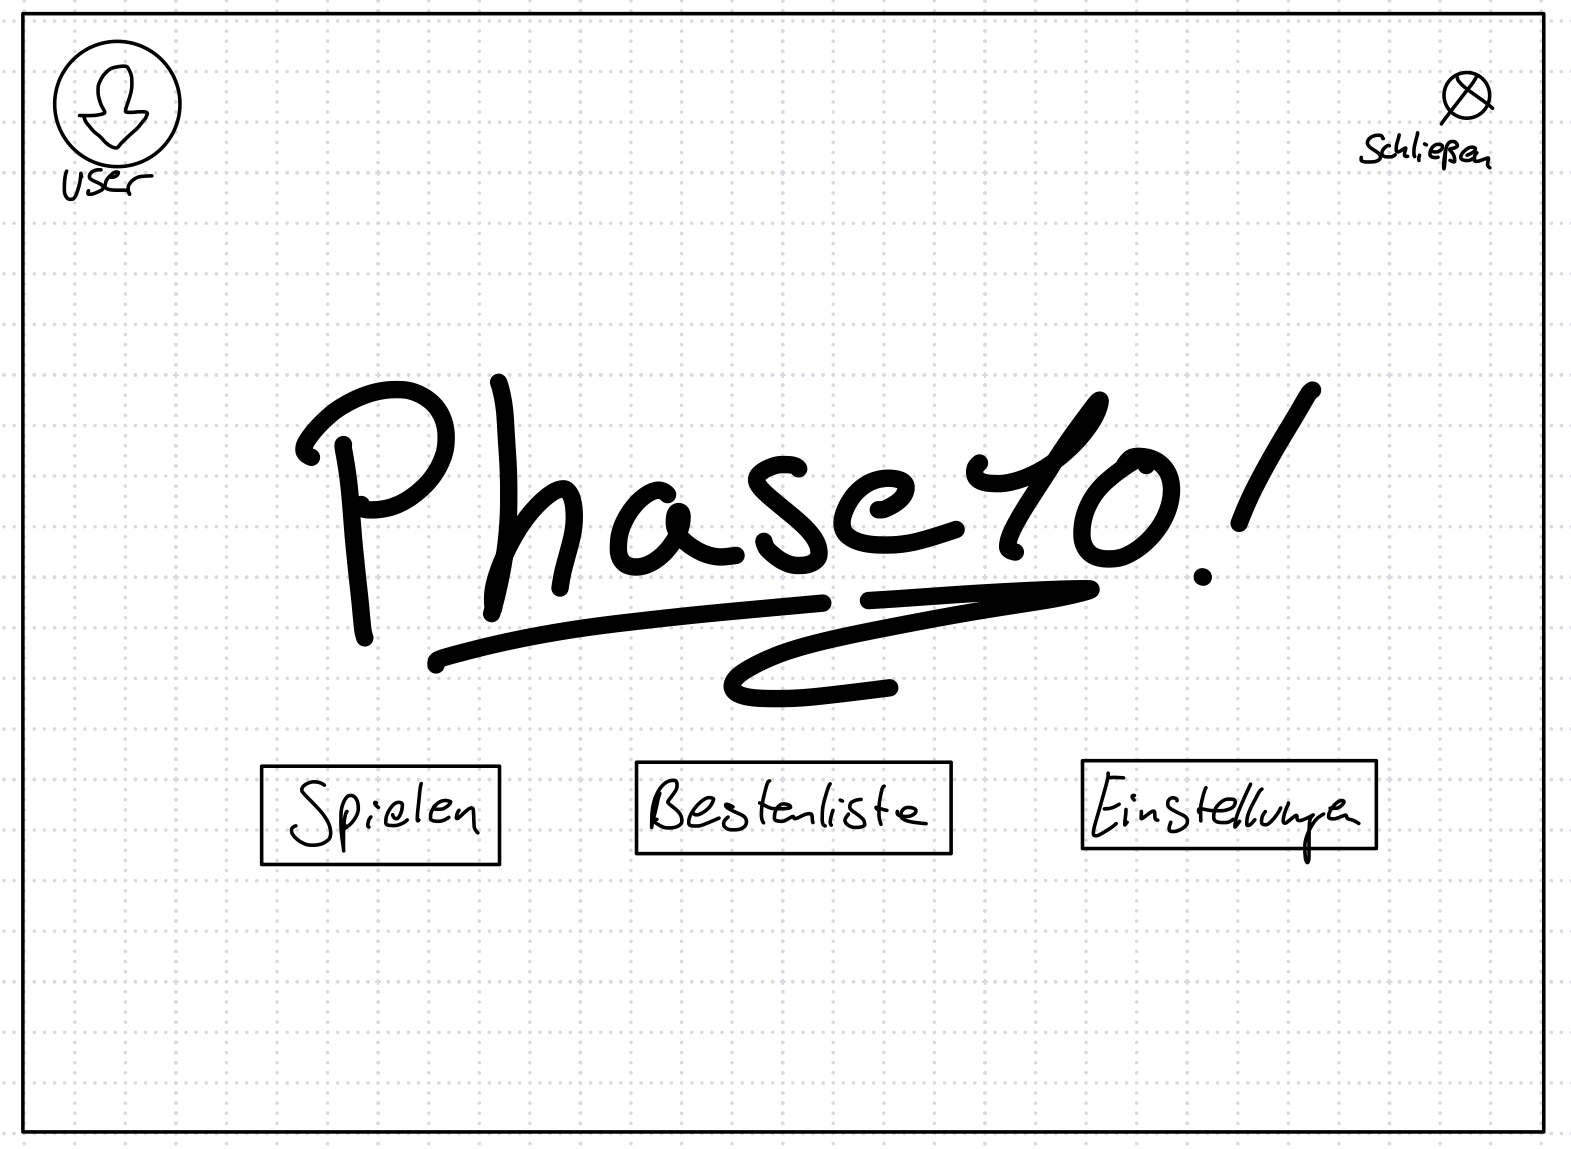 User
Schließen
Phase 10!
Spielen
Bestenliste
Einstellungen